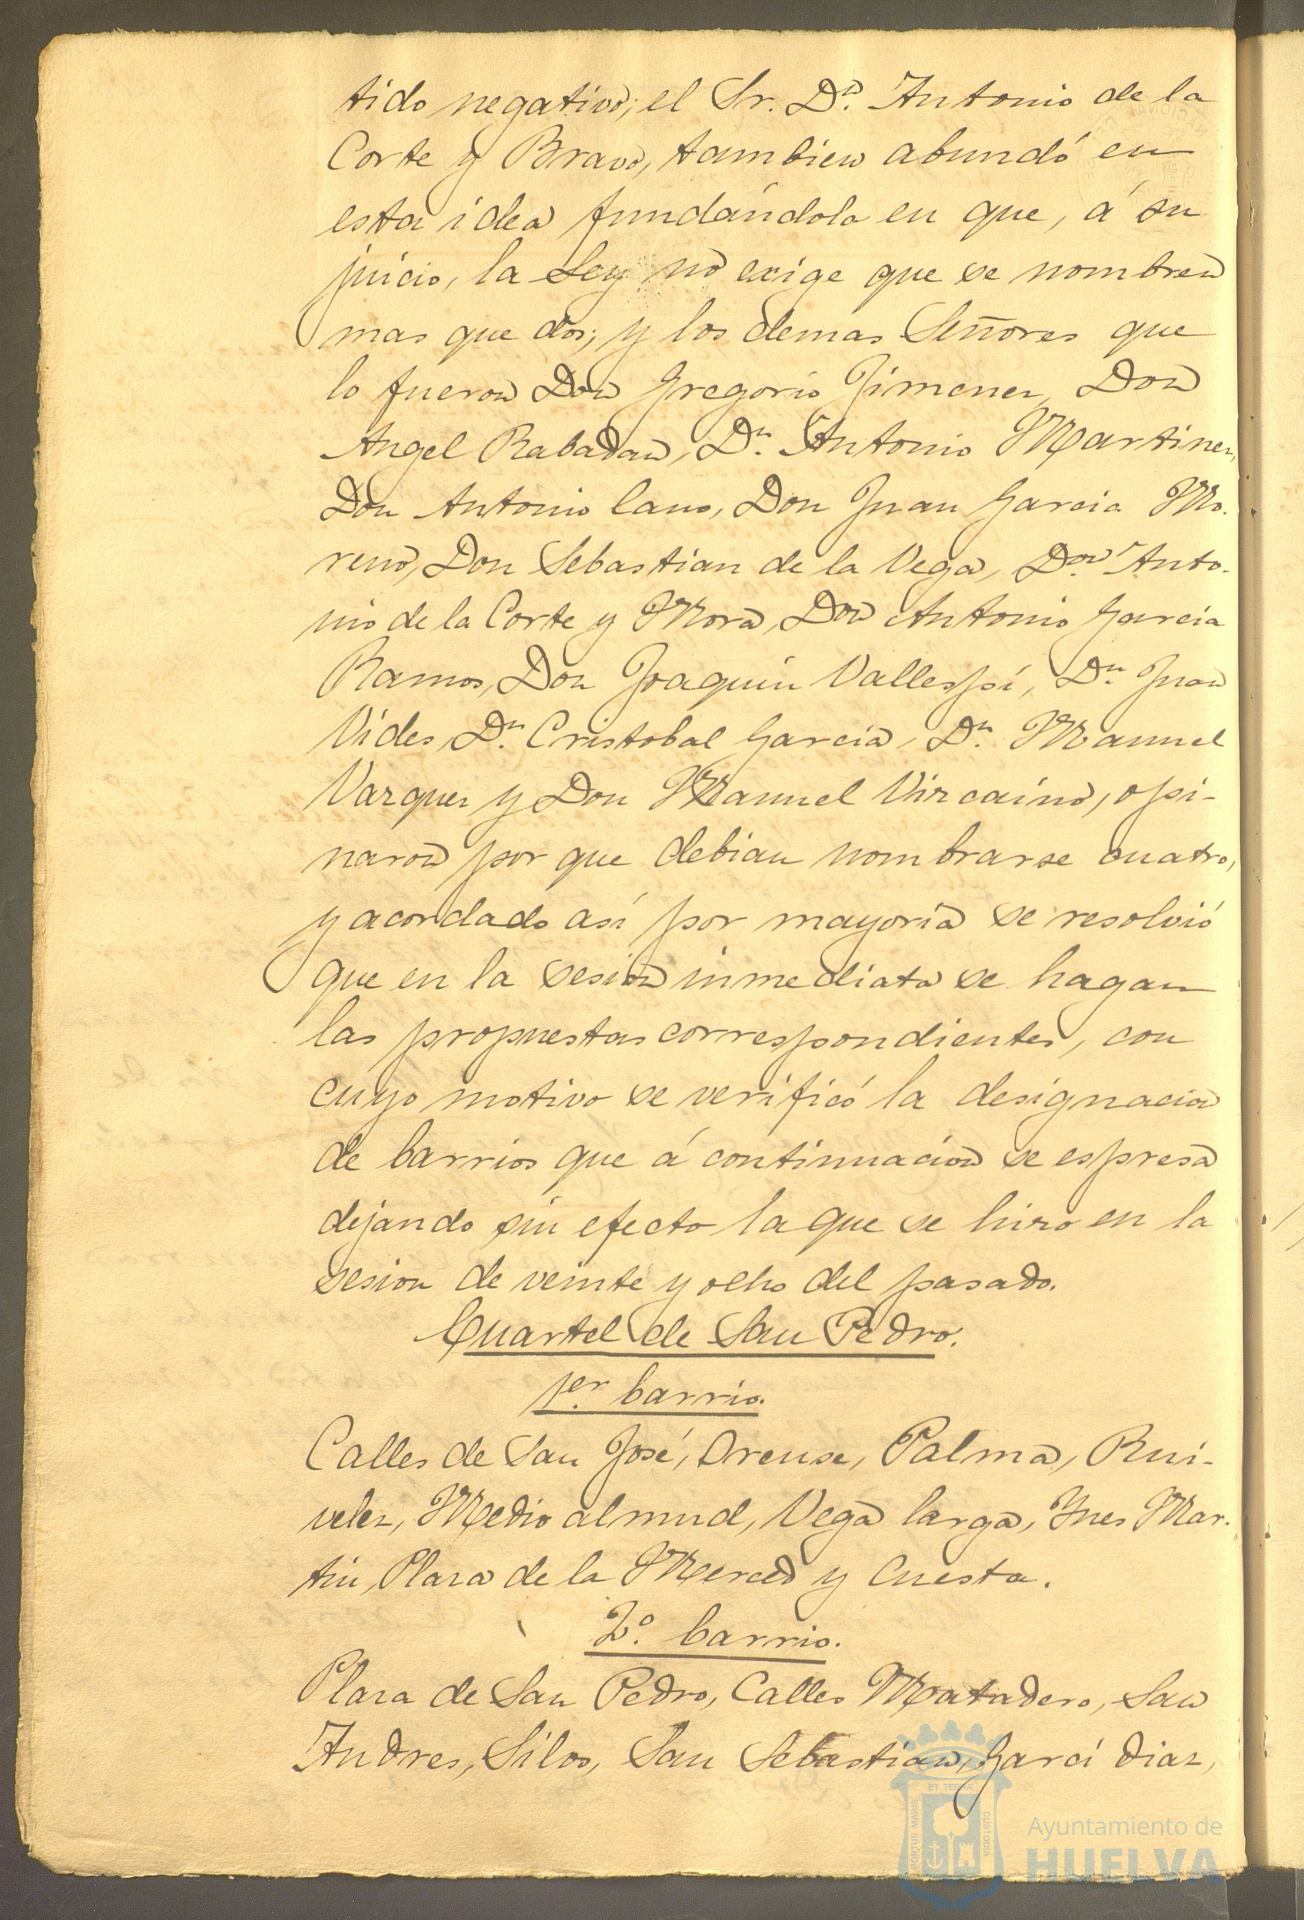 tido negativo; el Sr. Dn. Antonio de la
Corte y Bravo, tambien abundó en
esta idea fundándola en que, á su
juicio, la Ley no exige que se nombren
mas que dos; y los demas Señores que
lo fueron Don Gregorio Jimenez, Don
Angel Rabadan, Dn. Antonio Martinez,
Don Antonio Cano, Don Juan Garcia Mo-
reno, Don Sebastian de la Vega, Don Anto-
nio de la Corte y Mora, Don Antonio Garcia
Ramos, Don Joaquin Vallespí, Dn. Juan
Vides, Dn. Cristobal Garcia, Dn. Manuel
Vazquez y Don Manuel Vizcaino, opi-
naron por que debian nombrarse cuatro,
y acordado así por mayoría se resolvió
que en la sesion inmediata se hagan
las propuestas correspondientes, con
cuyo motivo se verificó la designacion
de barrios que á continuacion se espresa
dejando sin efecto la que se hizo en la
sesion de veinte y ocho del pasado.
Cuartel de San Pedro.
1er. barrio.
Calles de San José, Orense, Palma, Rui-
velez, Medio almud, Vega larga, Ynes Mar-
tin, Plaza de la Merced y Cuesta.
2º. barrio.
Plaza de San Pedro, Calles Matadero, San
Andres, Silos, San Sebastian, Garci Diaz,
Ayuntamiento de
HUELVA